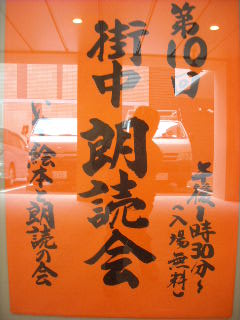 第10回
街中 朗読会
午後1時30分〜
(入場無料)
絵本と朗読の会